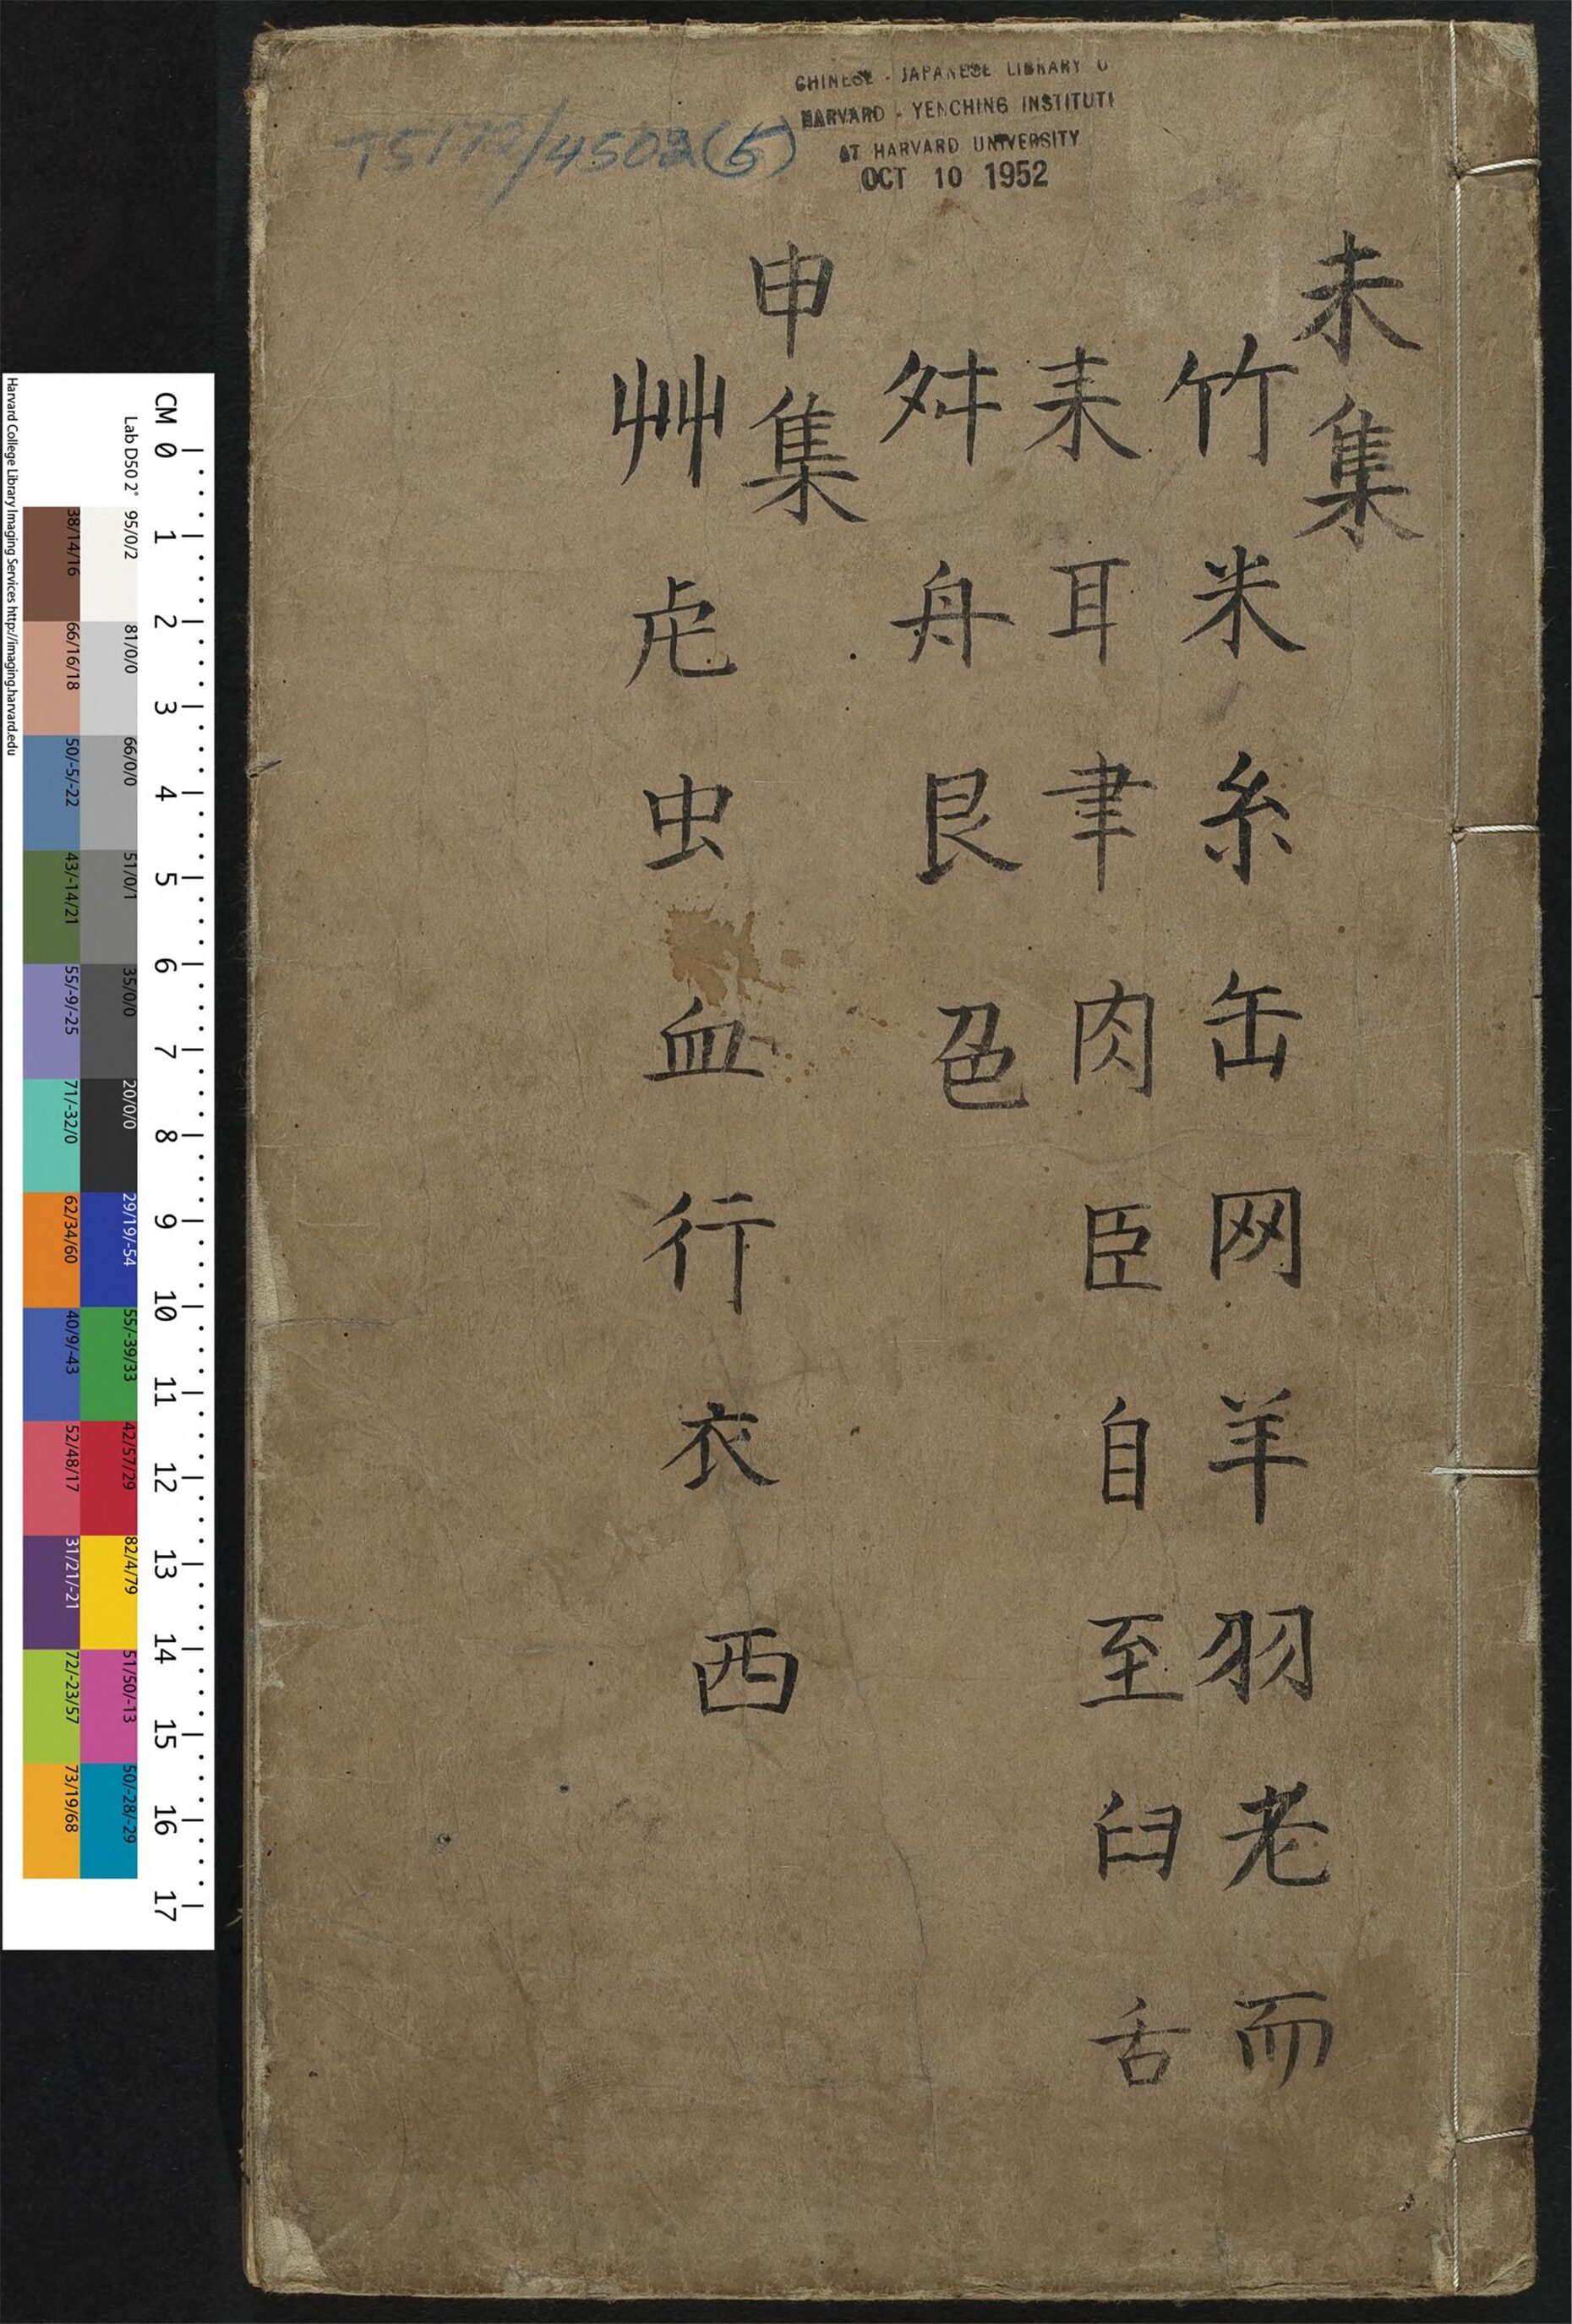 CHINESE - JAPANESE LIBRARY O
HARVARD - YENCHING INSTITUTE
AT HARVARD UNIVERSITY
OCT 10 1952
T5172/4502(5)
未集
竹米糸缶网羊羽老而
耒耳聿肉臣自至臼舌
舛舟艮色
申集
艸虍虫血行衣襾
CM 0 1 2 3 4 5 6 7 8 9 10 11 12 13 14 15 16 17
Lab D50 2° 95/0/2 81/0/0 66/0/0 51/0/1 35/0/0 20/0/0 29/19/-54 55/-39/33 42/57/29 82/4/79 51/50/-13 50/-28/-29
38/14/16 66/16/18 50/-5/-22 43/-14/21 55/-9/-25 71/-32/0 62/34/60 40/9/-43 52/48/17 31/21/-21 72/-23/57 73/19/68
Harvard College Library Imaging Services http://imaging.harvard.edu